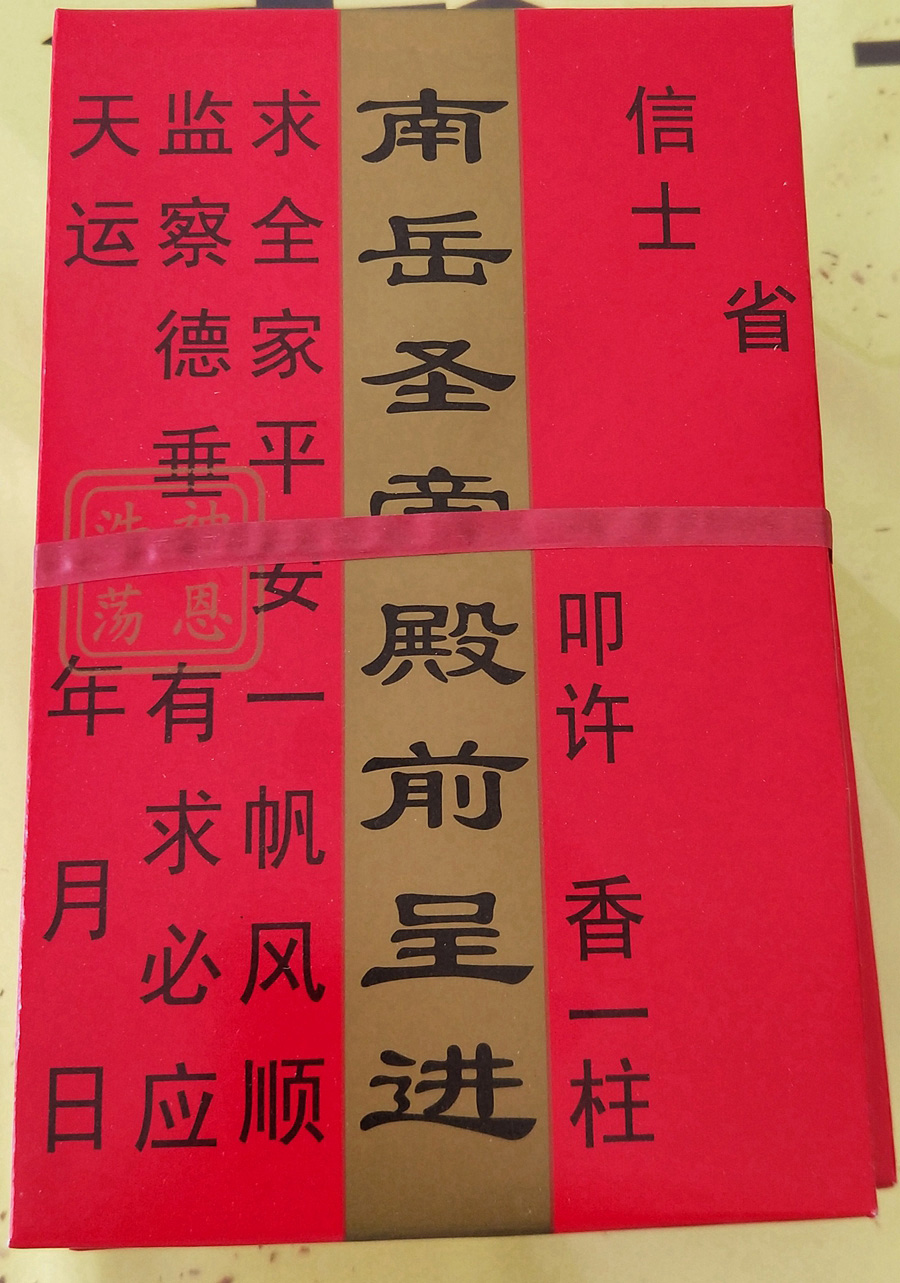 省
信士
叩许 香一柱
南岳圣帝殿前呈进
求全家平安一帆风顺
监察德垂 有求必应
天运 年 月 日
神恩
浩荡